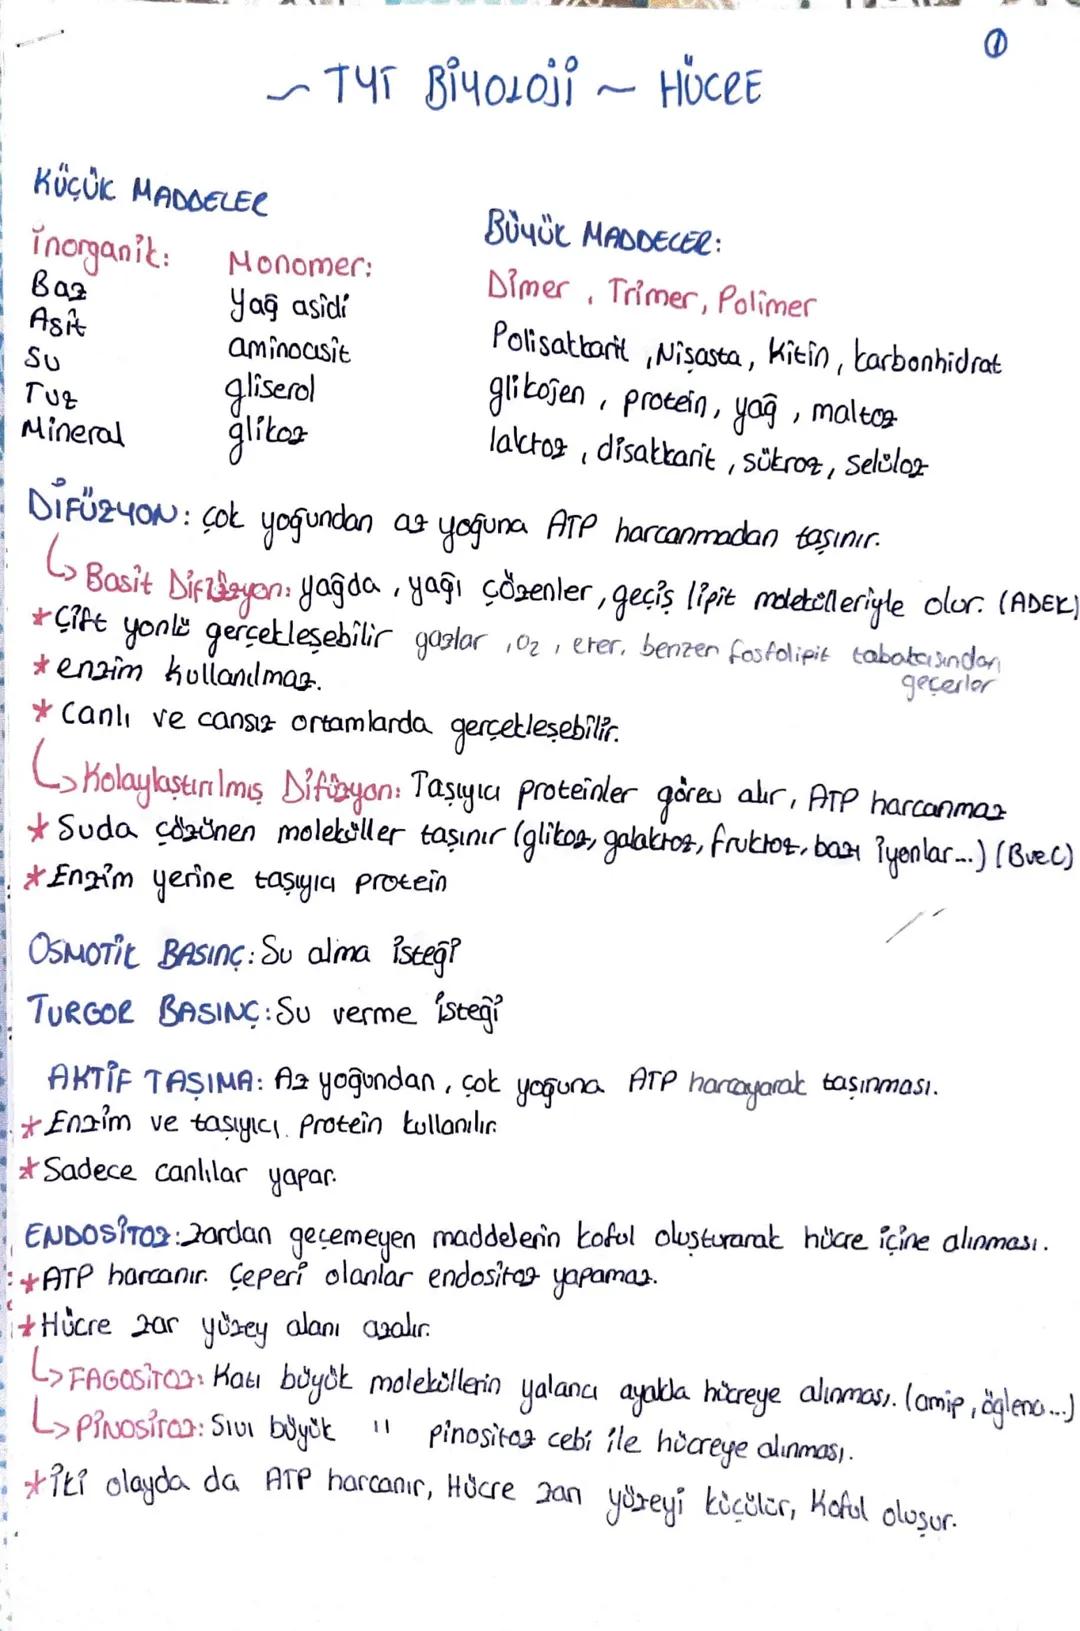 ①
~ TYT BİYOLOJİ ~ HÜCRE
KÜÇÜK MADDELER
İnorganik: Monomer:
Baz Yağ asidi
Asit aminoasit
Su gliserol
Tuz glikoz
Mineral
BÜYÜK MADDELER:
Dimer, Trimer, Polimer
Polisakkarit, Nişasta, Kitin, karbonhidrat
glikojen, protein, yağ, maltoz
laktoz, disakkarit, sükroz, Selüloz
DİFÜZYON: çok yoğundan az yoğuna ATP harcanmadan taşınır.
↳ Basit Difüzyon: yağda, yağı çözenler, geçiş lipit molekülleriyle olur. (ADEK)
* Çift yönlü gerçekleşebilir gazlar, O2, eter, benzen fosfolipit tabakasından geçerler
* enzim kullanılmaz.
* Canlı ve cansız ortamlarda gerçekleşebilir.
↳ Kolaylaştırılmış Difüzyon: Taşıyıcı proteinler görev alır, ATP harcanmaz
* Suda çözünen moleküller taşınır (glikoz, galaktoz, fruktoz, bazı iyonlar...) (B ve C)
* Enzim yerine taşıyıcı protein
OSMOTİK BASINÇ: Su alma isteği
TURGOR BASINÇ: Su verme isteği
AKTİF TAŞIMA: Az yoğundan, çok yoğuna ATP harcayarak taşınması.
* Enzim ve taşıyıcı protein kullanılır.
* Sadece canlılar yapar.
ENDOSİTOZ: Zardan geçemeyen maddelerin koful oluşturarak hücre içine alınması.
* ATP harcanır. Çeperi olanlar endositoz yapamaz.
* Hücre zar yüzey alanı azalır.
↳ FAGOSİTOZ: Katı büyük moleküllerin yalancı ayakla hücreye alınması. (amip, öglena...)
↳ PİNOSİTOZ: Sıvı büyük " pinositoz cebi ile hücreye alınması.
* İki olayda da ATP harcanır, Hücre zarı yüzeyi küçülür, Koful oluşur.